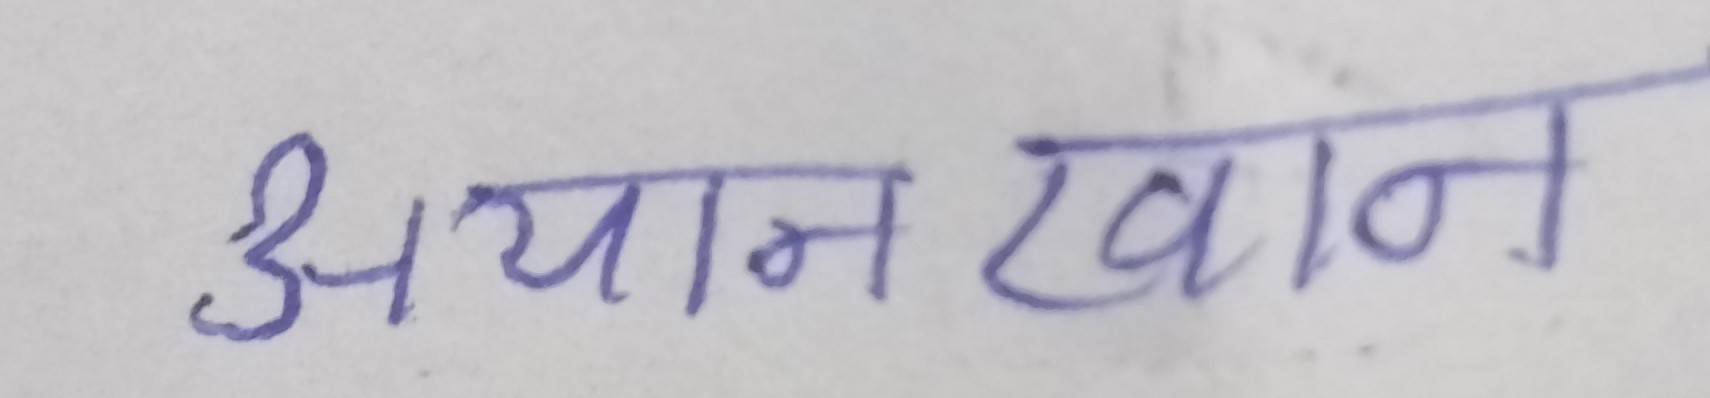 अयान खान